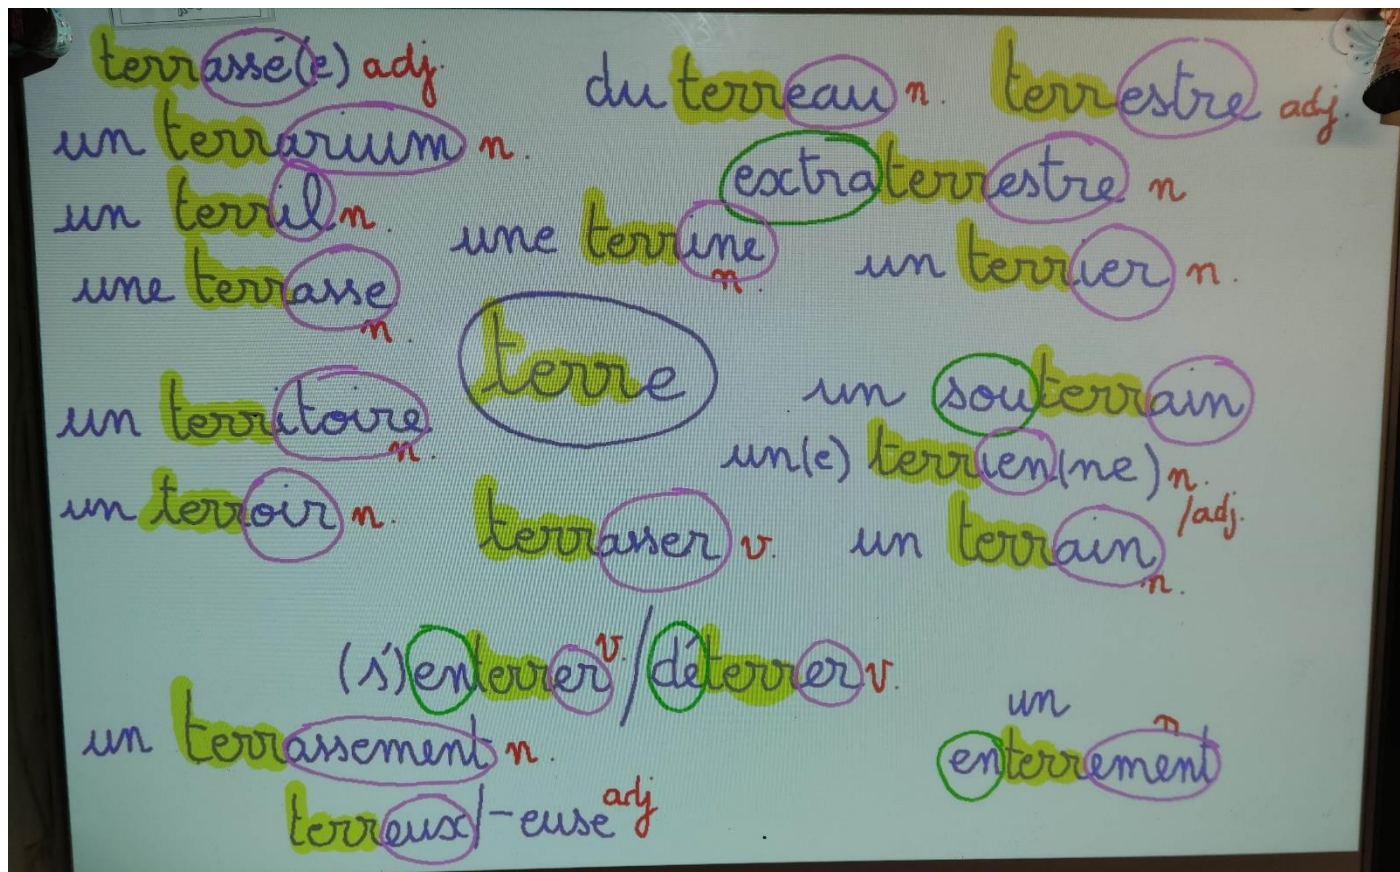 terrassé(e) adj.
du terreau n.
terrestre adj.
un terrarium n.
extraterrestre n
un terril n.
une terrine n.
un terrier n.
une terrasse n.
terre
un territoire n.
un souterrain
un(e) terrien(ne) n./adj.
un terroir n.
terrasser v.
un terrain n.
(s')enterrer v. / déterrer v.
un terrassement n.
un enterrement n
terreux/-euse adj